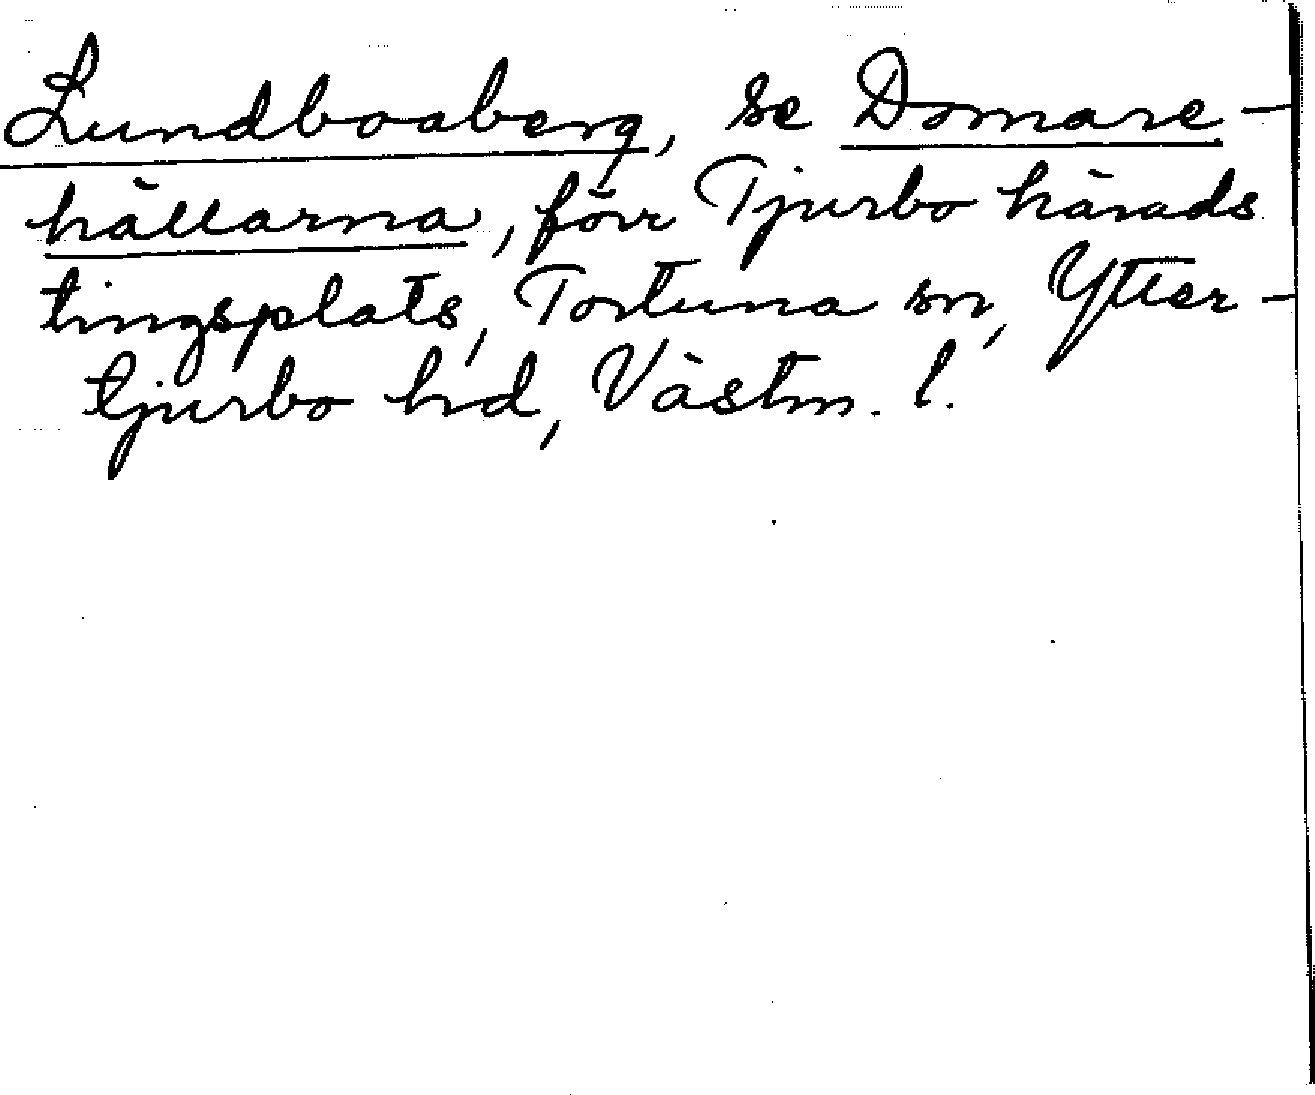 Lundboaberg, se Domare-
hällarna, förr Tjurbo härads
tingsplats, Tortuna sn, Ytter-
tjurbo hd, Västm. l.